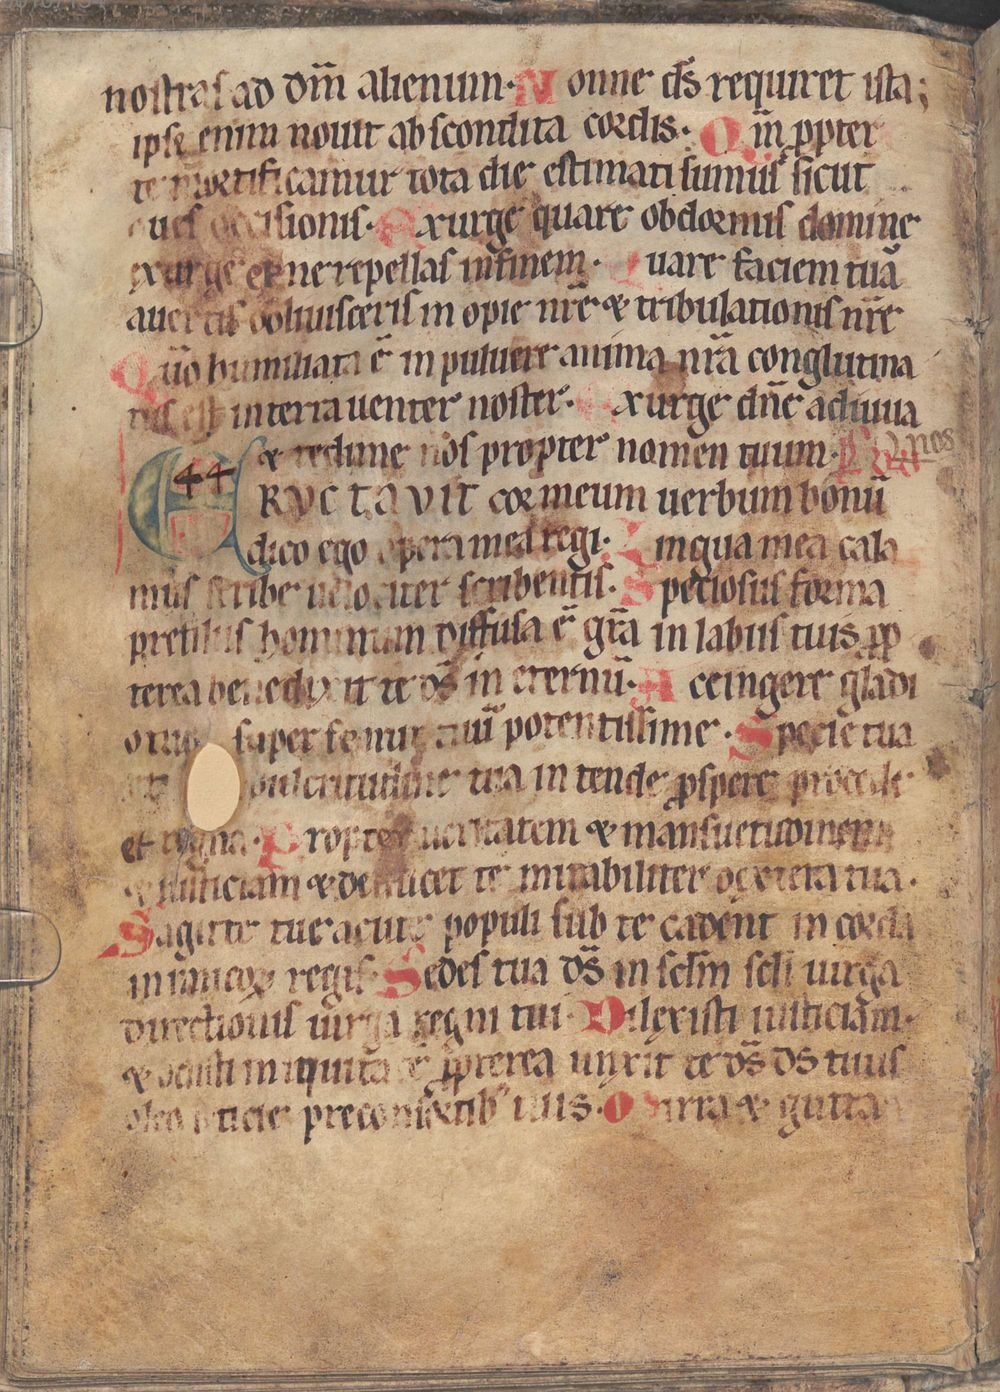 nostras ad dm̄ alienum· Nonne ds̄ requiret ista;
ipse enim nouit abscondita cordis· Qm̄ ꝓpter
te mortificamur tota die estimati sumus sicut
oues occisionis· Exurge quare obdormis domine
exurge et ne repellas in finem· Quare faciem tuā
auertis obliuisceris in opie nr̄e & tribulationis nr̄e
Qm̄ humiliata ē in puluere anima nr̄a conglutina
tus est in terra uenter noster· Exurge dn̄e adiuua
& redime nos propter nomen tuum·
44
ERVCTAVIT cor meum uerbum bonū
dico ego opera mea regi· Lingua mea cala
mus scribe uelociter scribentis· Speciosus forma
pre filiis hominum diffusa ē gr̄a in labiis tuis ꝓp
terea benedixit te ds̄ in eternū· Accingere gladi
o tuo super femur tuū potentissime· Specie tua
et pulcritudine tua intende ꝓspere procede
et regna· Propter ueritatem & mansuetudinem
& iusticiam & deducet te mirabiliter dextera tua·
Sagitte tue acute populi sub te cadent in corda
inimicoꝝ regis· Sedes tua ds̄ in sclm̄ scli uirga
directionis uirga regni tui· Dilexisti iusticiam·
& odisti iniquitatē ꝓpterea unxit te ds̄ ds̄ tuus
oleo leticie pre consortib; tuis· Mirra & gutta